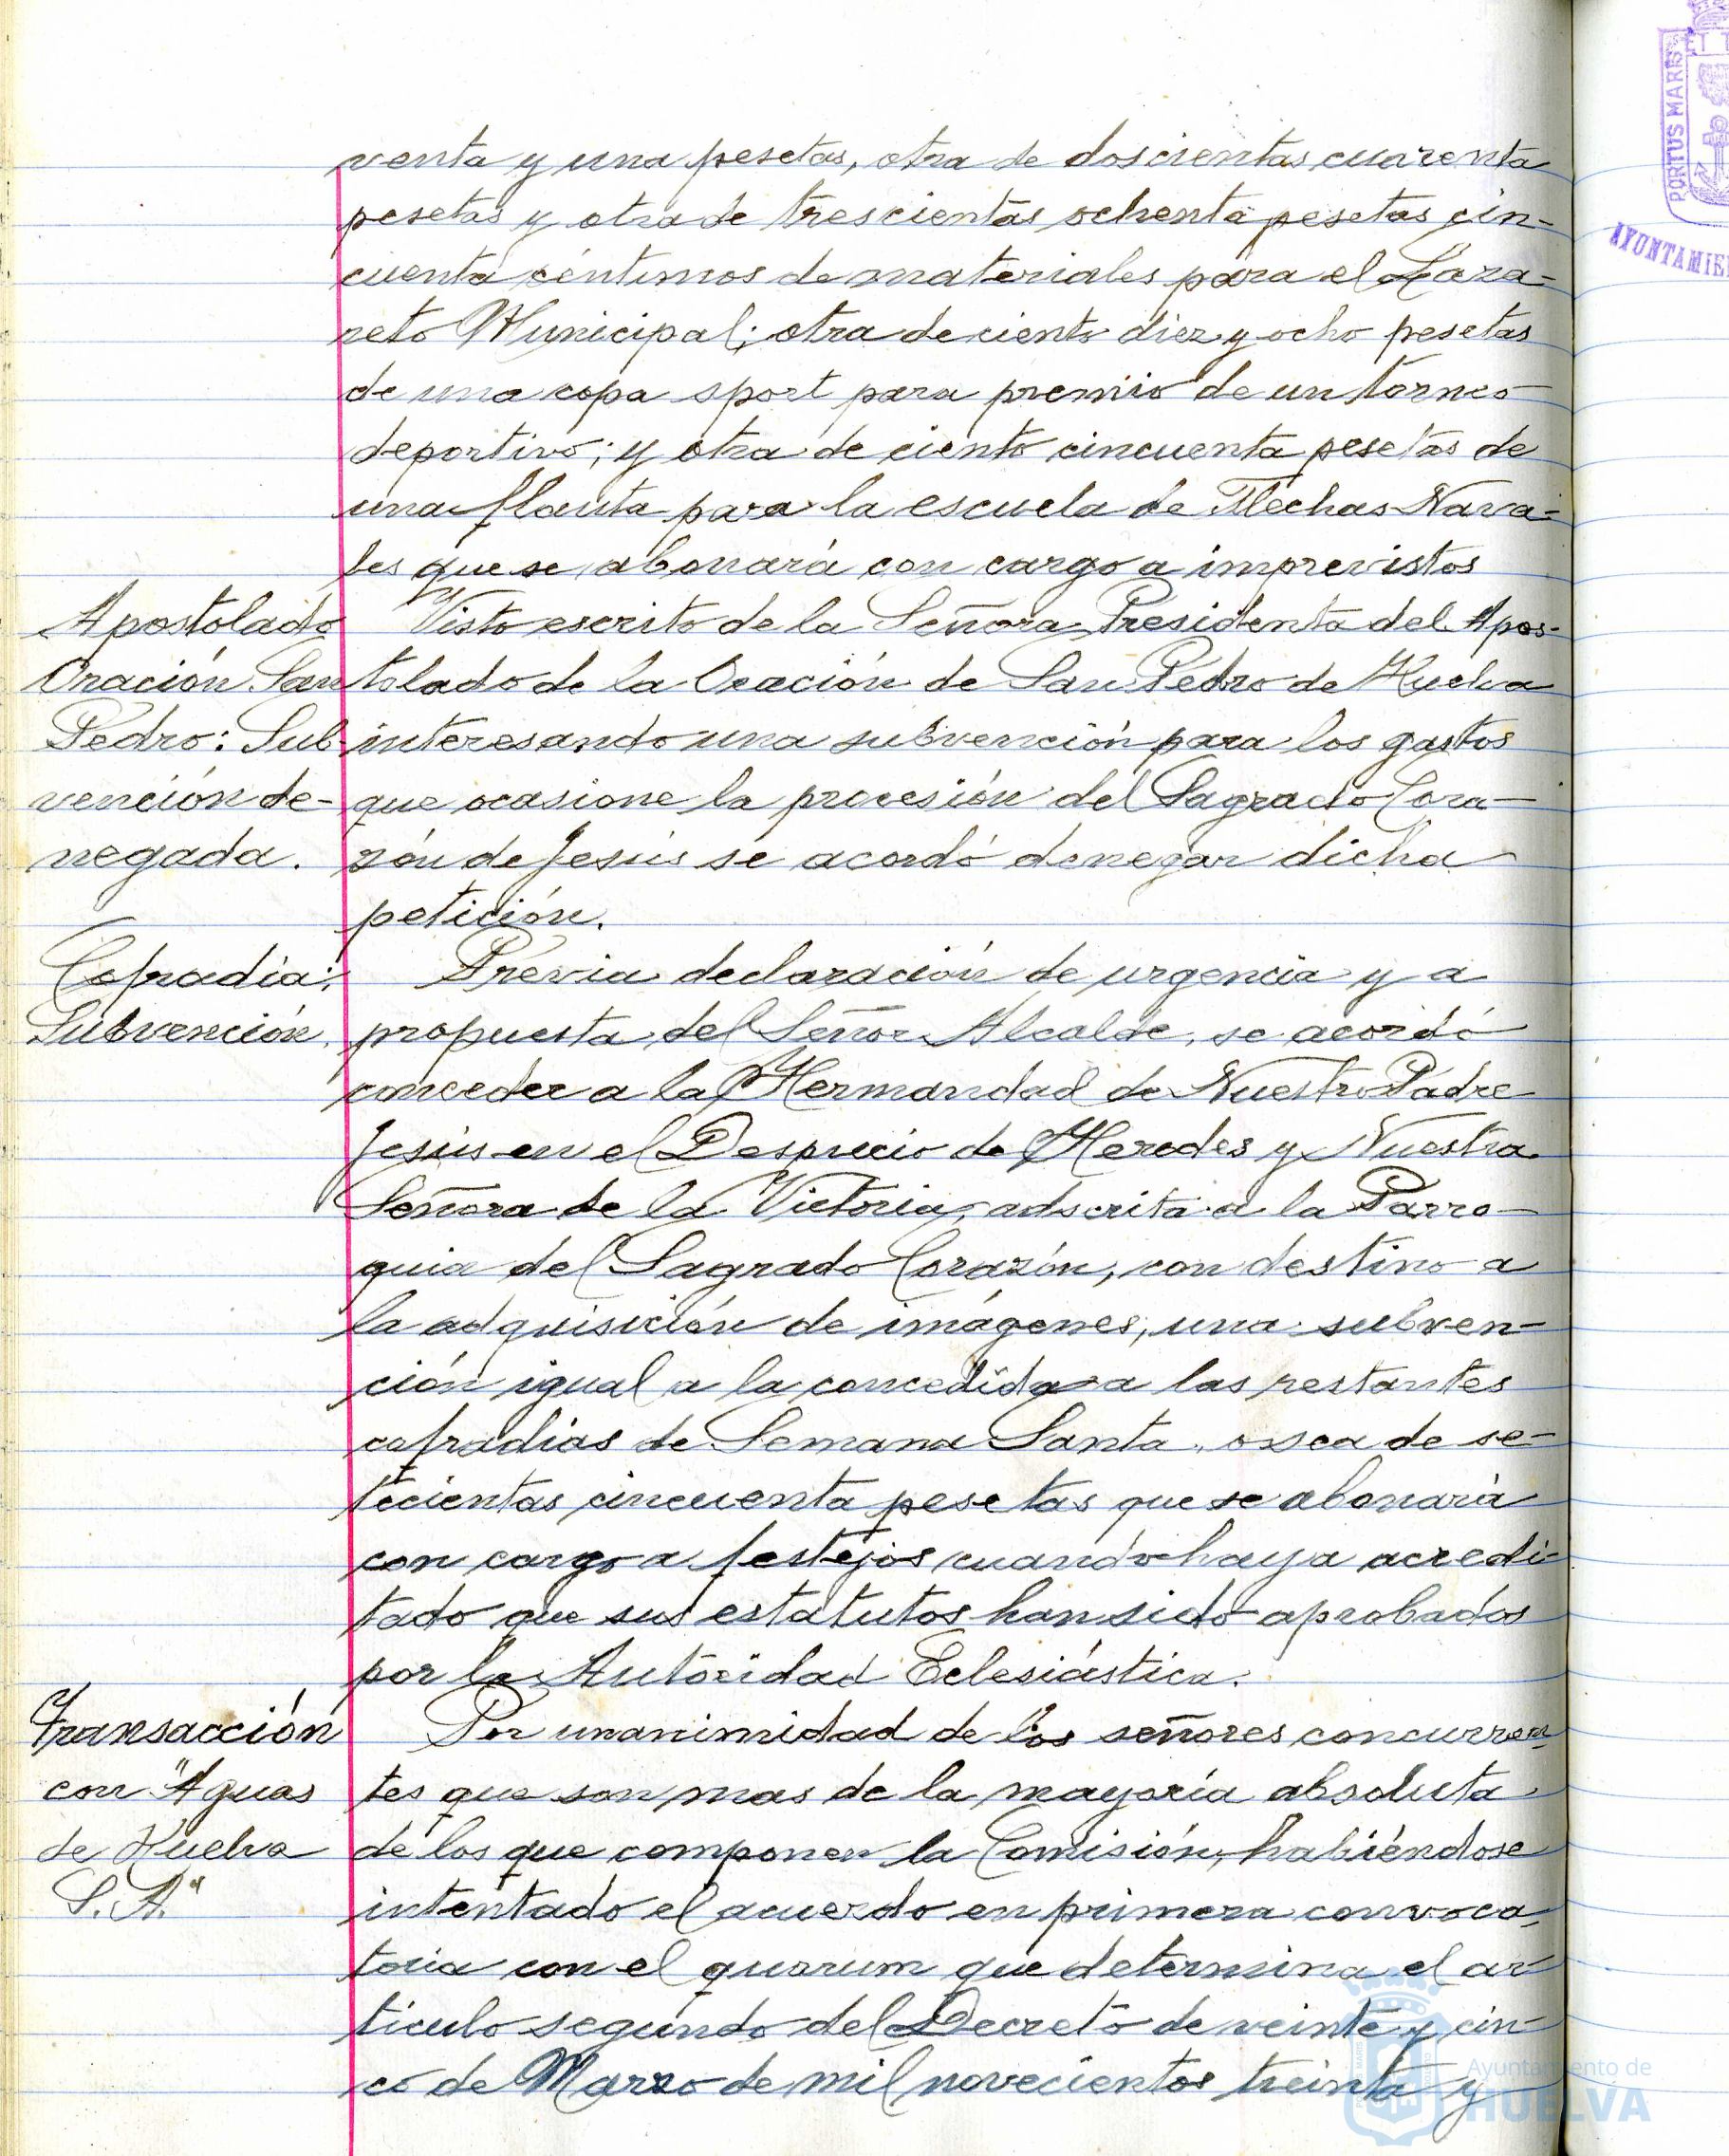 venta y una pesetas, otra de doscientas cuarenta
pesetas y otra de trescientas ochenta pesetas cin-
cuenta céntimos de materiales para el Laza-
reto Municipal; otra de ciento diez y ocho pesetas
de una copa sport para premio de un torneo
deportivo; y otra de ciento cincuenta pesetas de
una flauta para la escuela de Flechas Nava-
les que se abonará con cargo a imprevistos
Apostolado
Oración San
Pedro: Sub-
vención de-
negada.
Visto escrito de la Señora Presidenta del Apos-
tolado de la Oración de San Pedro de Huelva
interesando una subvención para los gastos
que ocasione la procesión del Sagrado Cora-
zón de Jesús se acordó denegar dicha
petición.
Cofradia:
Subvención.
Previa declaración de urgencia y a
propuesta del Señor Alcalde, se acordó
conceder a la Hermandad de Nuestro Padre
Jesús en el Desprecio de Herodes y Nuestra
Señora de la Victoria, adscrita a la Parro-
quia del Sagrado Corazón, con destino a
la adquisición de imágenes, una subven-
ción igual a la concedida a las restantes
cofradias de Semana Santa, o sea de se-
tecientas cincuenta pesetas que se abonará
con cargo a festejos cuando haya acredi-
tado que sus estatutos han sido aprobados
por la Autoridad Eclesiástica.
Transacción
con "Aguas
de Huelva
S. A."
Por unanimidad de los señores concurren-
tes que son mas de la mayoría absoluta
de los que componen la Comisión, habiéndose
intentado el acuerdo en primera convoca-
toria con el quorum que determina el ar-
tículo segundo del Decreto de veinte y cin-
co de Marzo de mil novecientos treinta y
PORTUS MARIS
ET T
AYUNTAMIE
Ayuntamiento de
HUELVA